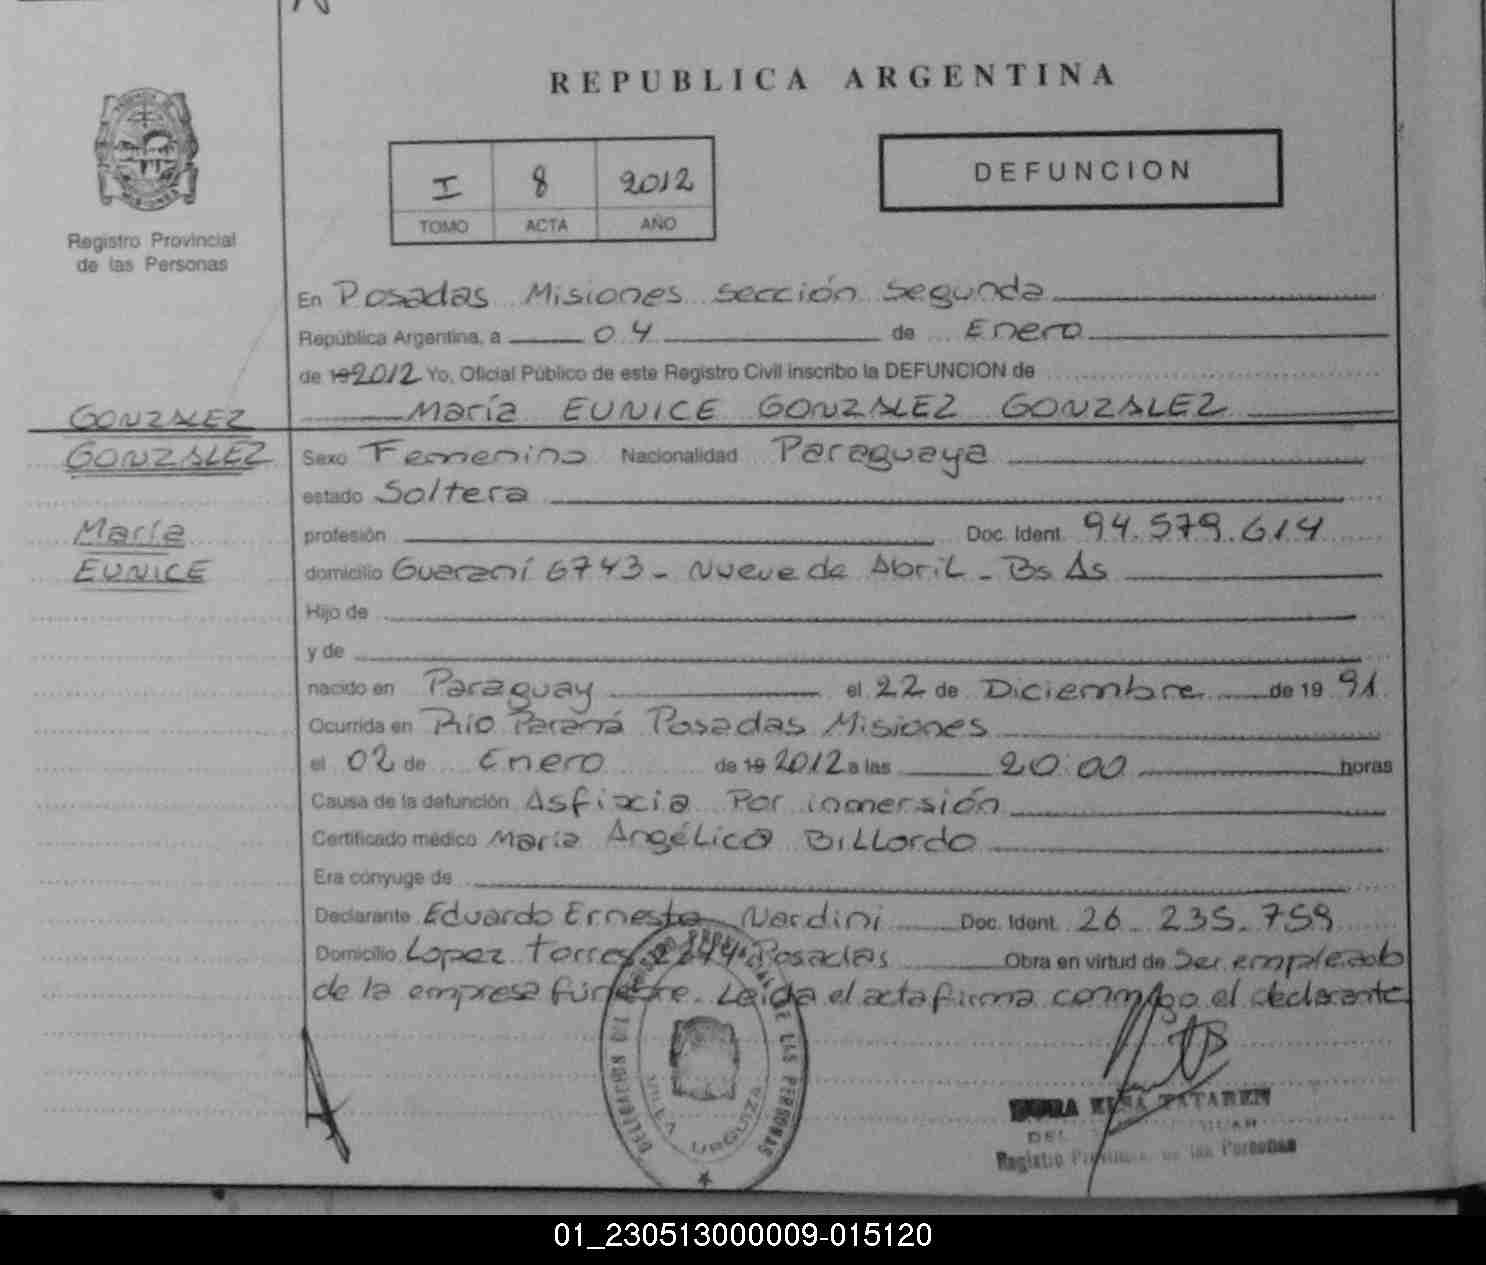 REPUBLICA ARGENTINA
I 8 2012
TOMO ACTA AÑO
DEFUNCION
Registro Provincial
de las Personas
En Posadas Misiones sección Segunda
República Argentina, a 04 de Enero
de 19 2012 Yo, Oficial Público de este Registro Civil inscribo la DEFUNCION de
María EUNICE GONZALEZ GONZALEZ
GONZALEZ
GONZALEZ
María
EUNICE
Sexo Femenino Nacionalidad Paraguaya
estado Soltera
profesión Doc. Ident. 94.579.614
domicilio Guaraní 6743 - Nueve de Abril - Bs As
Hijo de
y de
nacido en Paraguay el 22 de Diciembre de 19 91
Ocurrida en Río Paraná Posadas Misiones
el 02 de Enero de 19 2012 a las 20:00 horas
Causa de la defunción Asfixia Por inmersión
Certificado médico María Angélica Billordo
Era cónyuge de
Declarante Eduardo Ernesto Nardini Doc. Ident. 26.235.759
Domicilio Lopez Torres Posadas Obra en virtud de Ser empleado
de la empresa fúnebre. Leida el acta firma conmigo el declarante
DE LAS PERSONAS
VILLA URQUIZA
Registro de las Personas
01_230513000009-015120